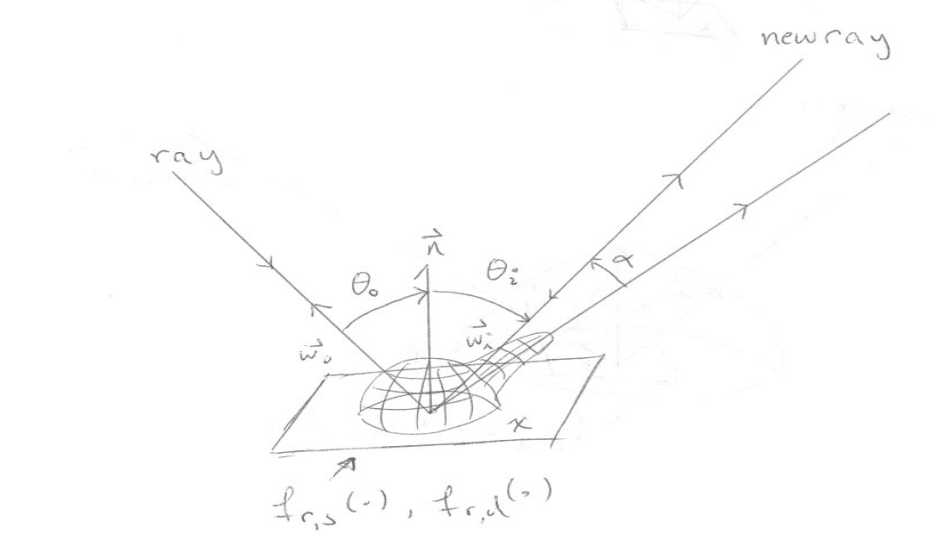 newray
ray
n⃗
θₒ
θᵢ
α
w⃗ₒ
w⃗ᵢ
x
fr,s(·), fr,d(·)